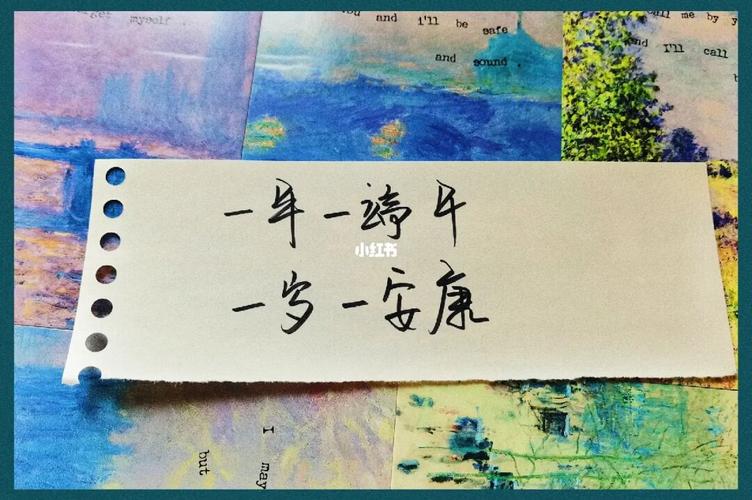 forget myself.
you and i'll be safe
and sound.
call me by y
and I'll call
b
一年一端午
小红书
一岁一安康
I may
but